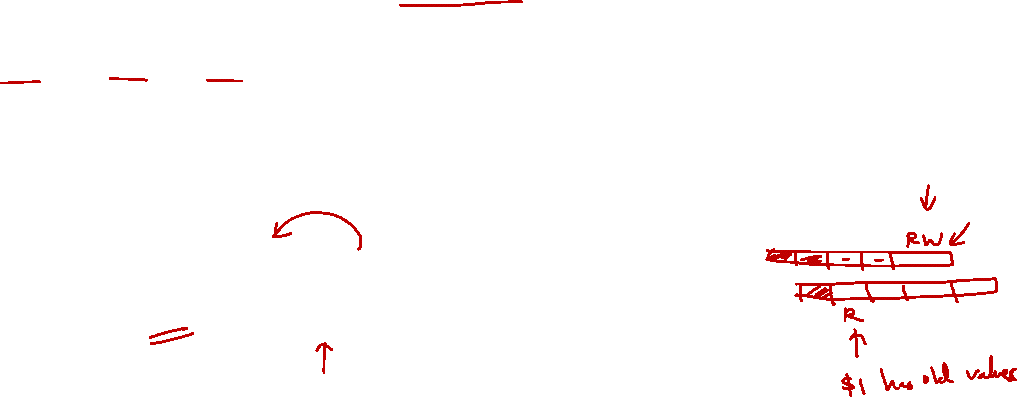 RW
R
$1 has old values